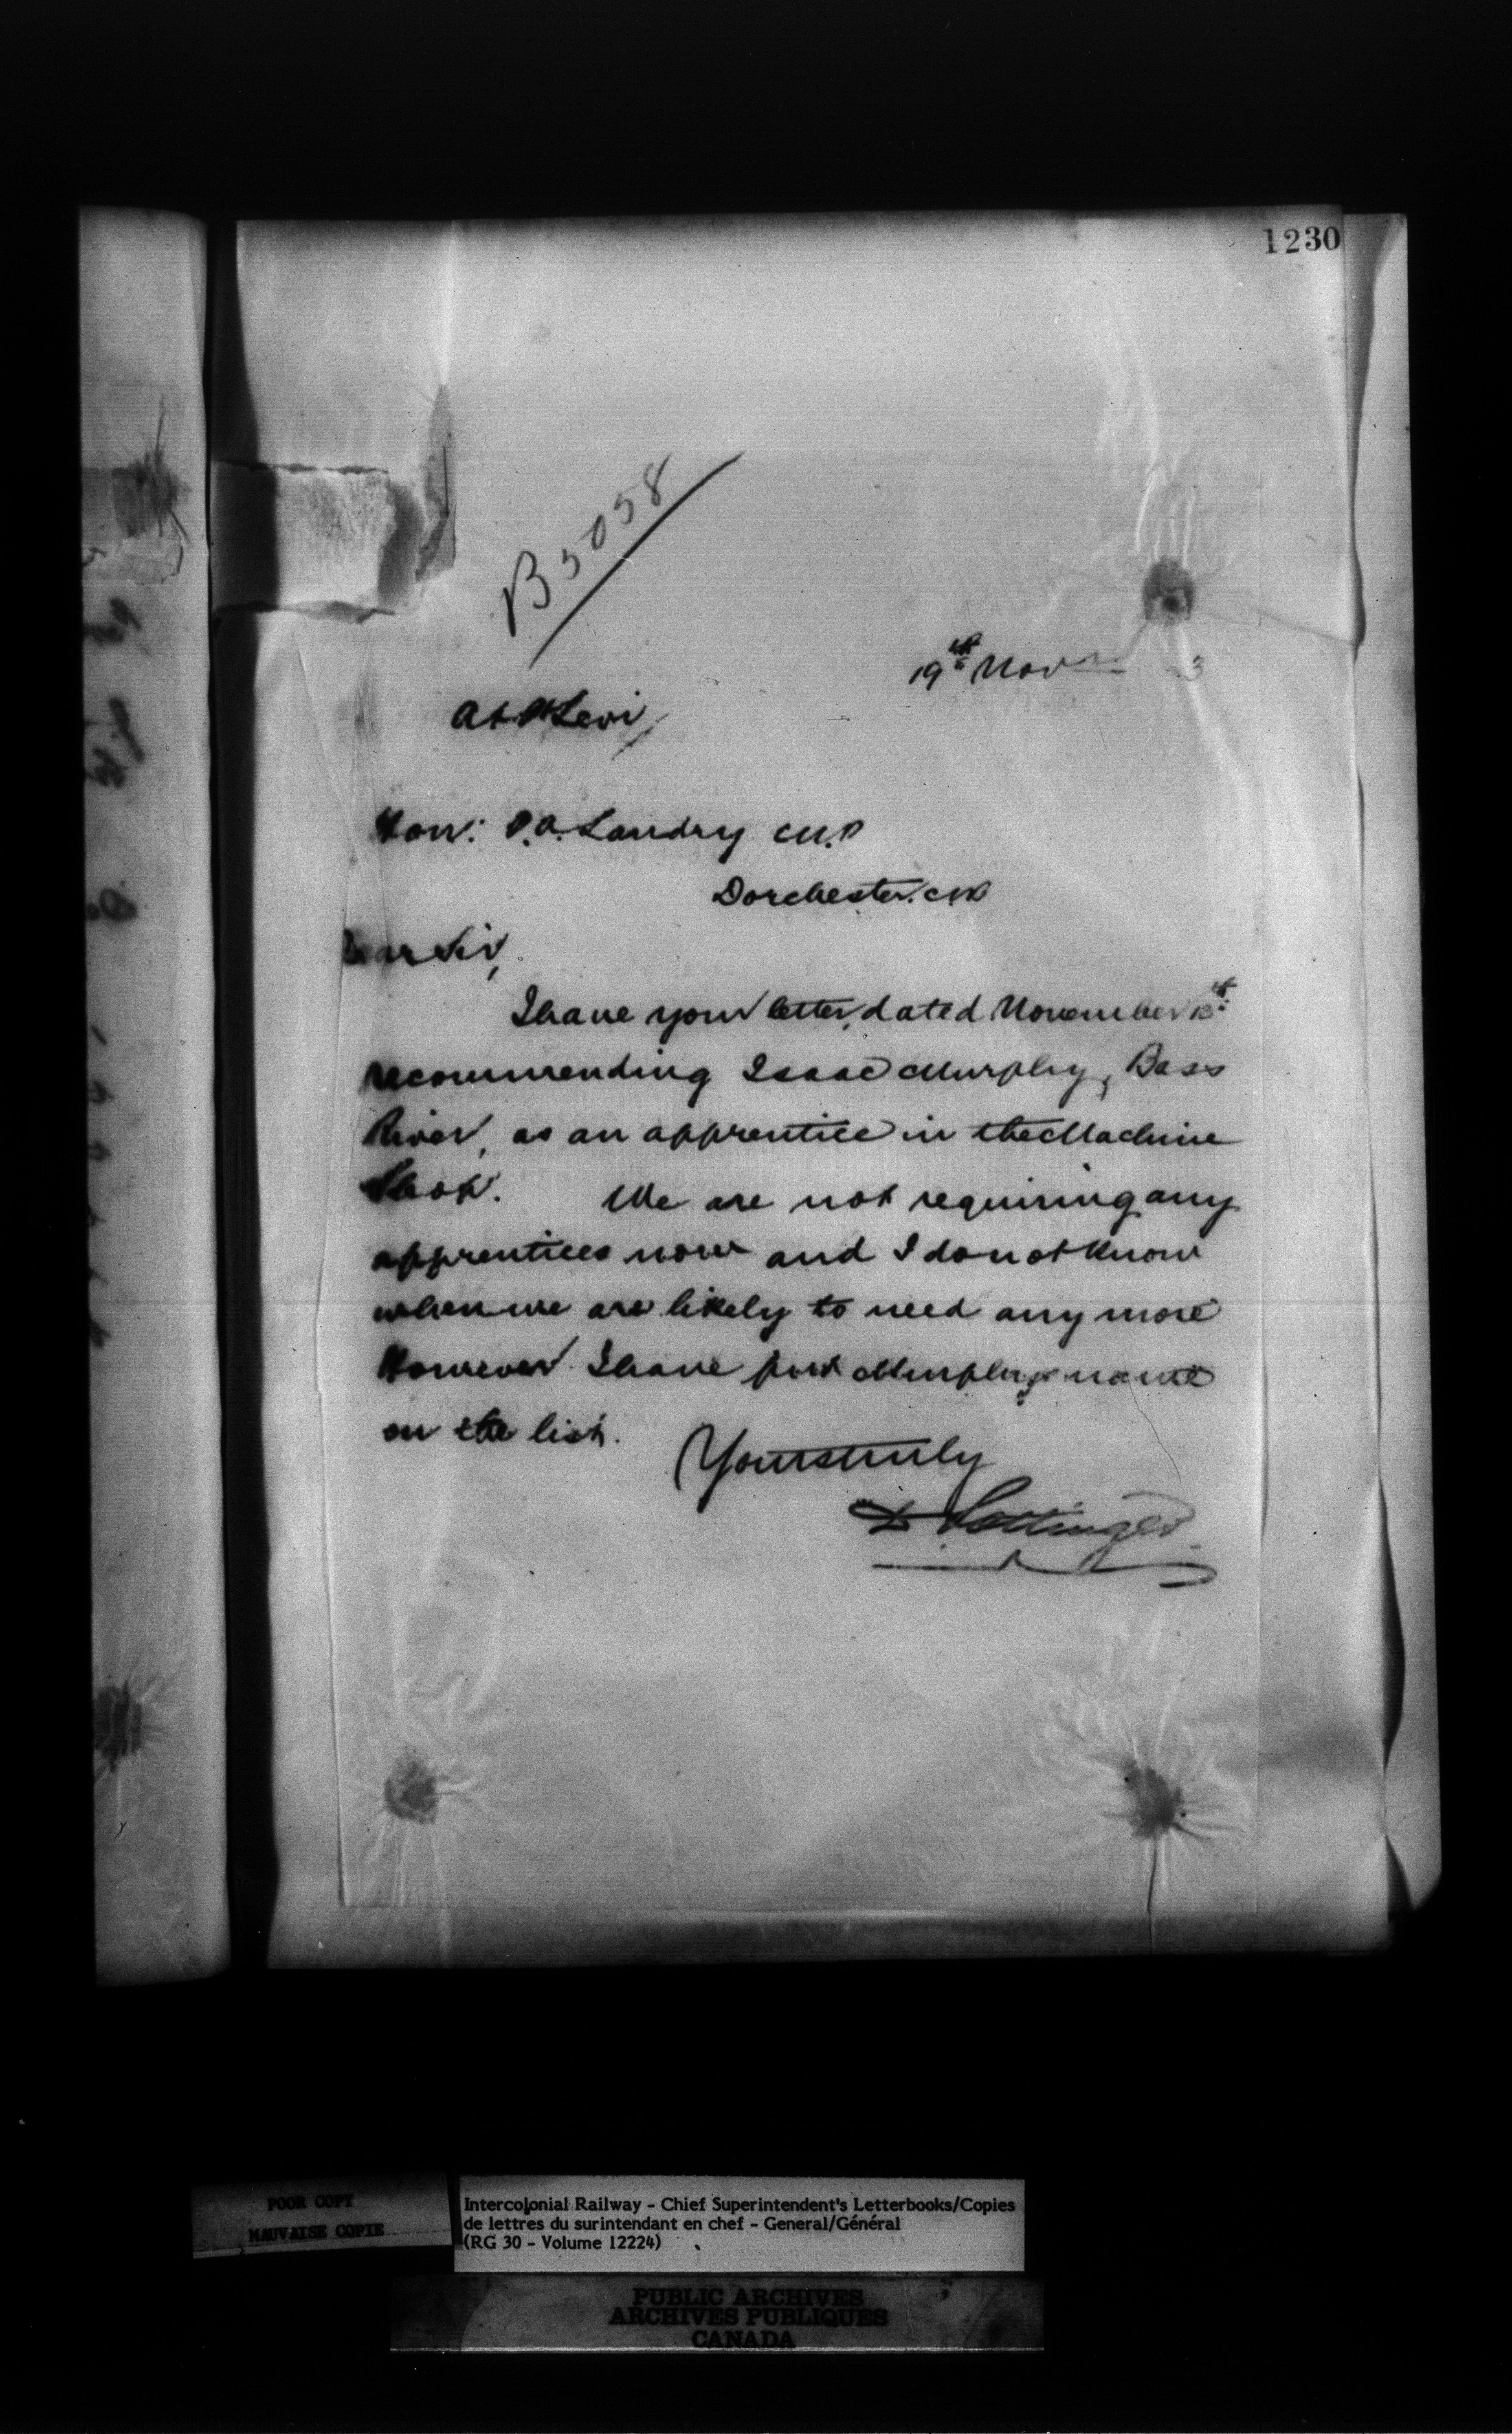 1230
B5058
19th Nov 3
At Levi
Hon: P.A. Landry M.P
Dorchester. NB
Dear Sir,
I have your letter, dated November 13th
recommending Isaac Murphy, Bass
River, as an apprentice in the Machine
Shop. We are not requiring any
apprentices now and I do not know
when we are likely to need any more
However I have put Murphys name
on the list.
Yours truly
D Pottinger
POOR COPY
MAUVAISE COPIE
Intercolonial Railway - Chief Superintendent's Letterbooks/Copies
de lettres du surintendant en chef - General/Général
(RG 30 - Volume 12224)
PUBLIC ARCHIVES
ARCHIVES PUBLIQUES
CANADA